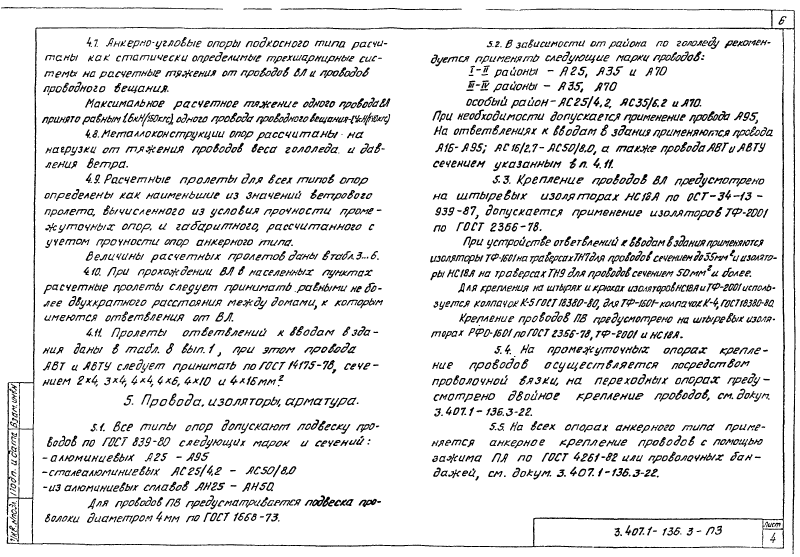 6
4.7. Анкерно-угловые опоры подкосного типа рассчи-
таны как статически определимые трехшарнирные сис-
темы на расчетные тяжения от проводов ВЛ и проводов
проводного вещания.
Максимальное расчетное тяжение одного провода ВЛ
принято равным 1,6кН(160кгс), одного провода проводного вещания-
4.8. Металлоконструкции опор рассчитаны на
нагрузки от тяжения проводов веса гололеда и дав-
ления ветра.
4.9. Расчетные пролеты для всех типов опор
определены как наименьшие из значений ветрового
пролета, вычисленного из условия прочности проме-
жуточных опор, и габаритного, рассчитанного с
учетом прочности опор анкерного типа.
Величины расчетных пролетов даны в табл. 3...6.
4.10. При прохождении ВЛ в населенных пунктах
расчетные пролеты следует принимать равными не бо-
лее двухкратного расстояния между домами, к которым
имеются ответвления от ВЛ.
4.11. Пролеты ответвлений к вводам в зда-
ния даны в табл. 8 вып. 1, при этом провода
АВТ и АВТУ следует принимать по ГОСТ 14175-78, сече-
нием 2×4, 3×4, 4×4, 4×6, 4×10 и 4×16мм²
5. Провода, изоляторы, арматура.
5.1. Все типы опор допускают подвеску про-
водов по ГОСТ 839-80 следующих марок и сечений:
-алюминиевых А25 - А95
-сталеалюминиевых АС25/4,2 - АС50/8,0
-из алюминиевых сплавов АН25 - АН50.
Для проводов ПВ предусматривается подвеска про-
волоки диаметром 4мм по ГОСТ 1668-73.
5.2. В зависимости от района по гололеду рекомен-
дуется применять следующие марки проводов:
I-II районы - А25, А35 и А70
III-IV районы - А35, А70
особый район-АС25/4,2, АС35/6.2 и А70.
При необходимости допускается применение провода А95,
На ответвлениях к вводам в здания применяются провода
А16-А95; АС16/2.7-АС50/8.0, а также провода АВТ и АВТУ
сечением указанным в п. 4.11.
5.3. Крепление проводов ВЛ предусмотрено
на штыревых изоляторах НС18А по ОСТ-34-13-
939-87, допускается применение изоляторов ТФ-2001
по ГОСТ 2366-78.
При устройстве ответвлений к вводам в здания применяются
изоляторы ТФ-1601 на траверсах ТН7 для проводов сечением до 35мм² и изолято-
ры НС18А на траверсах ТН9 для проводов сечением 50мм² и более.
Для крепления на штырях и крюках изоляторов НС18А и ТФ-2001 исполь-
зуется колпачок К-5 ГОСТ 18380-80, для ТФ-1601-колпачок К-4, ГОСТ 18380-80.
Крепление проводов ПВ предусмотрено на штыревых изоля-
торах РФО-1601 по ГОСТ 2366-78, ТФ-2001 и НС18А.
5.4. На промежуточных опорах крепле-
ние проводов осуществляется посредством
проволочной вязки, на переходных опорах преду-
смотрено двойное крепление проводов, см. докум.
3.407.1-136.3-22.
5.5. На всех опорах анкерного типа приме-
няется анкерное крепление проводов с помощью
зажима ПА по ГОСТ 4261-82 или проволочных бан-
дажей, см. докум. 3.407.1-136.3-22.
Инв.№подл. Подп. и дата Взам. инв.№
3.407.1-136.3-ПЗ
Лист
4